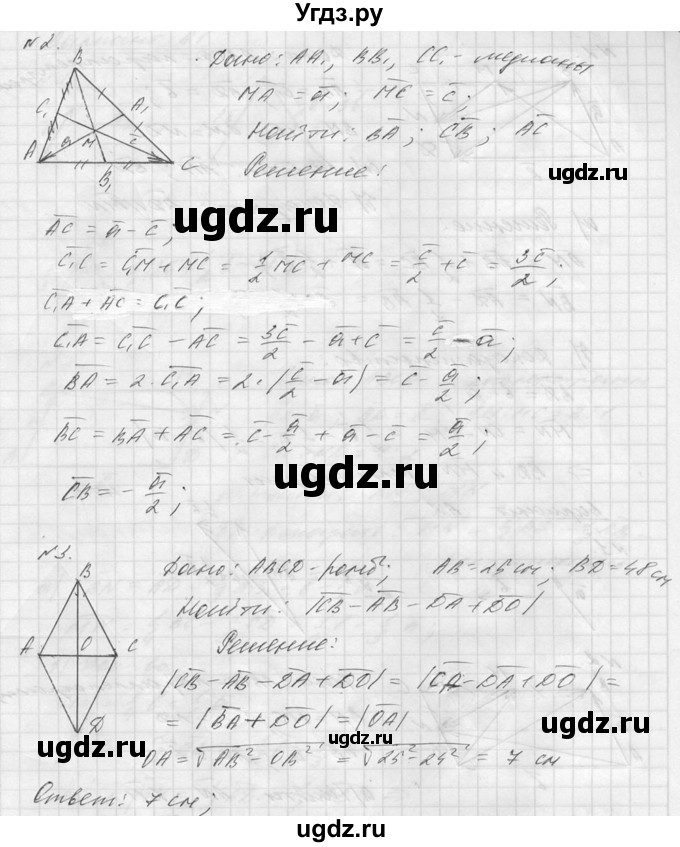 Угdz.ру
№2.
Дано: AA₁, BB₁, CC₁ - медианы
M̅A̅ = a̅; M̅C̅ = c̅;
Найти: B̅A̅; C̅B̅; A̅C̅
Решение:
B
C₁
A₁
a
M
c̅
A
B₁
C
A̅C̅ = a̅ - c̅;
ugdz.ru
C̅₁C̅ = C̅₁M̅ + M̅C̅ = 1/2 M̅C̅ + M̅C̅ = c̅/2 + c̅ = 3c̅/2;
C̅₁A̅ + A̅C̅ = C̅₁C̅;
C̅₁A̅ = C̅₁C̅ - A̅C̅ = 3c̅/2 - a̅ + c̅ = c̅/2 - a̅;
B̅A̅ = 2·C̅₁A̅ = 2·(c̅/2 - a̅) = c̅ - a̅/2;
B̅C̅ = B̅A̅ + A̅C̅ = c̅ - a̅/2 + a̅ - c̅ = a̅/2;
ugdz.ru
C̅B̅ = - a̅/2;
№3.
Дано: ABCD - ромб; AB = 25 см; BD = 48 см
Найти: |C̅B̅ - A̅B̅ - D̅A̅ + D̅O̅|
Решение:
B
A
O
C
D
|C̅B̅ - A̅B̅ - D̅A̅ + D̅O̅| = |C̅A̅ - D̅A̅ + D̅O̅| =
ugdz.ru
ugdz.ru
= |B̅A̅ + D̅O̅| = |O̅A̅|
OA = √(AB² - OB²) = √(25² - 24²) = 7 см
Ответ: 7 см;
ugdz.ru
ugdz.ru